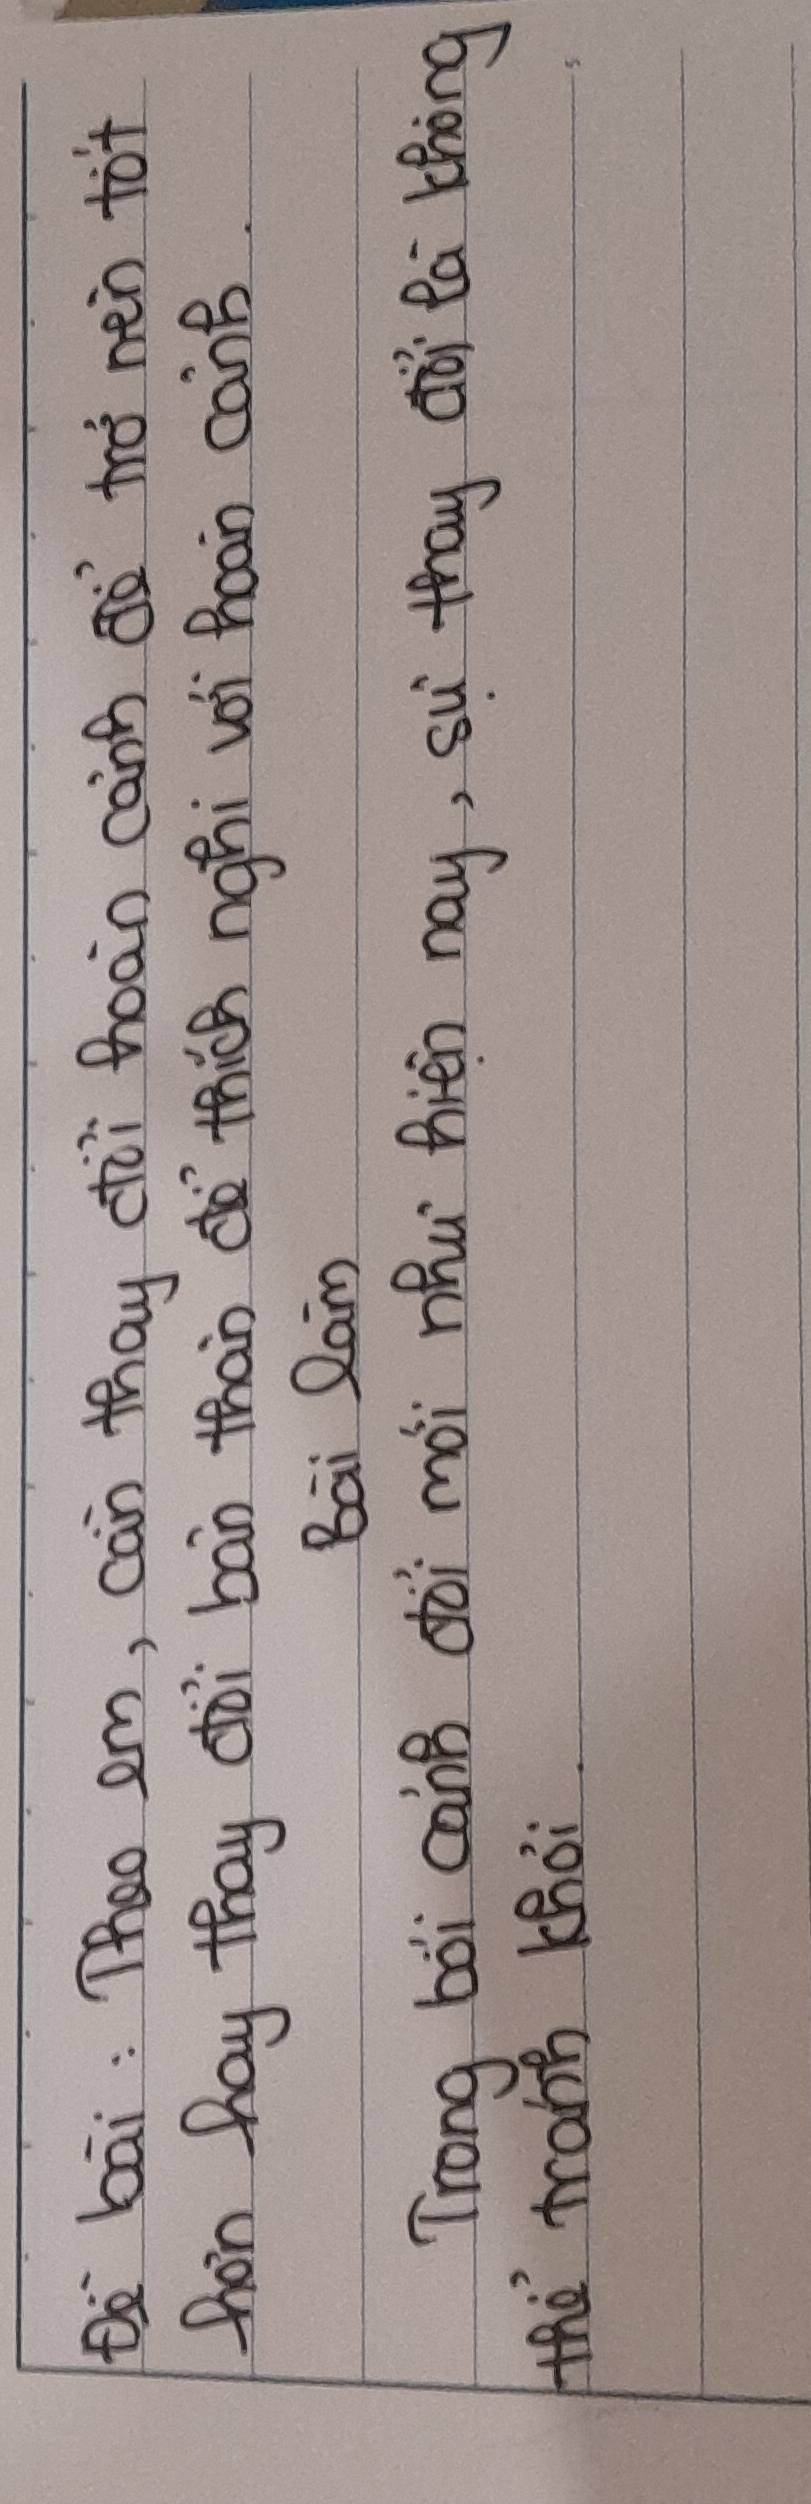 Đề bài : Theo em, cần thay đổi hoàn cảnh để trở nên tốt
hơn hay thay đổi bản thân để thích nghi với hoàn cảnh.
Bài làm
Trong bối cảnh đổi mới như hiện nay, sự thay đổi là không
thể tránh khỏi.